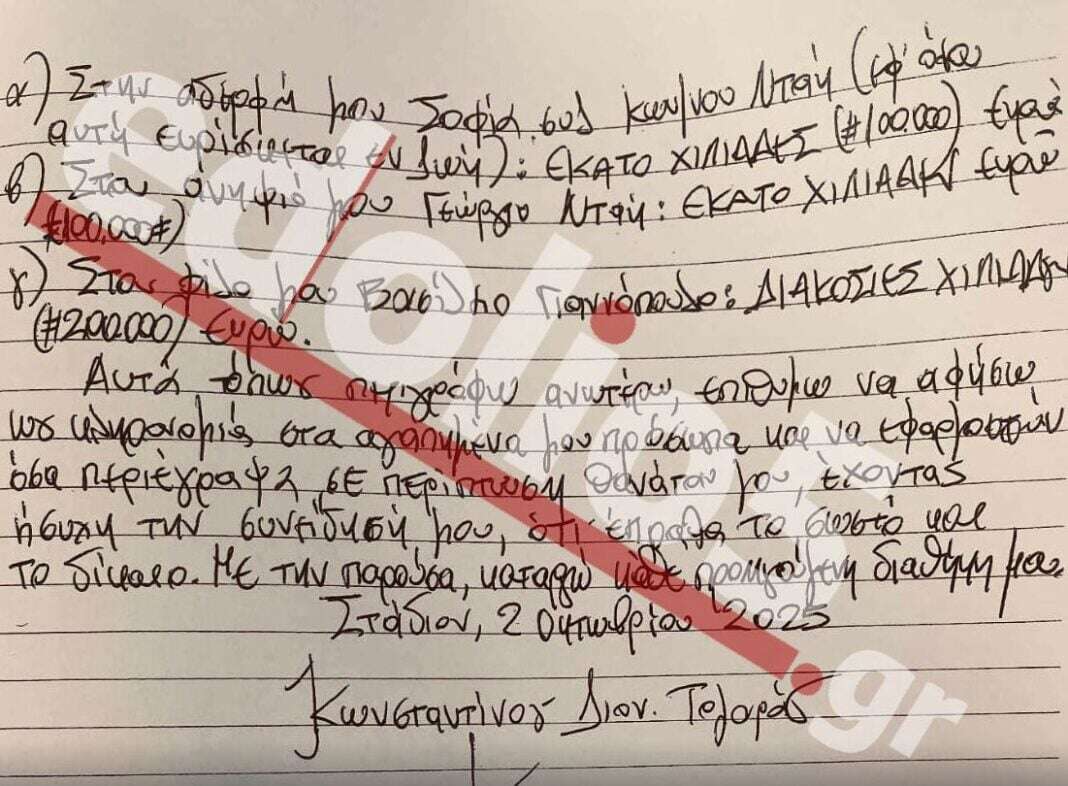 α) Στην αδερφή μου Σοφία συζ. Κων/νου Νταή (εφ' όσον
αυτή ευρίσκεται εν ζωή): ΕΚΑΤΟ ΧΙΛΙΑΔΕΣ (#100.000) Ευρώ
β) Στον ανηψιό μου Γεώργιο Νταή: ΕΚΑΤΟ ΧΙΛΙΑΔΕΣ Ευρώ
#100.000#)
γ) Στον φίλο μου Βασίλειο Γιαννόπουλο: ΔΙΑΚΟΣΙΕΣ ΧΙΛΙΑΔΕΣ
(#200.000) Ευρώ.
Αυτά όπως περιγράφω ανωτέρω, επιθυμώ να αφήσω
ως κληρονομιά στα αγαπημένα μου πρόσωπα και να εφαρμοστούν
όσα περιέγραψα σε περίπτωση θανάτου μου, έχοντας
ήσυχη την συνείδησή μου, ότι έπραξα το σωστό και
το δίκαιο. Με την παρούσα, καταργώ κάθε προηγούμενη διαθήκη μου.
Στάδιον, 2 Οκτωβρίου 2025
Κωνσταντίνος Διον. Τσλαράς
edolio5.gr